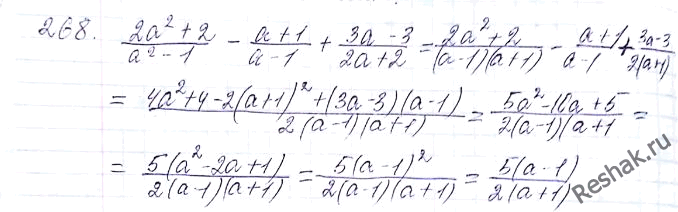 268. (2a²+2)/(a²-1) - (a+1)/(a-1) + (3a-3)/(2a+2) = (2a²+2)/((a-1)(a+1)) - (a+1)/(a-1) + (3a-3)/(2(a+1))
= (4a²+4-2(a+1)²+(3a-3)(a-1))/(2(a-1)(a+1)) = (5a²-10a+5)/(2(a-1)(a+1) =
= (5(a²-2a+1))/(2(a-1)(a+1)) = (5(a-1)²)/(2(a-1)(a+1)) = (5(a-1))/(2(a+1))
Reshak.ru